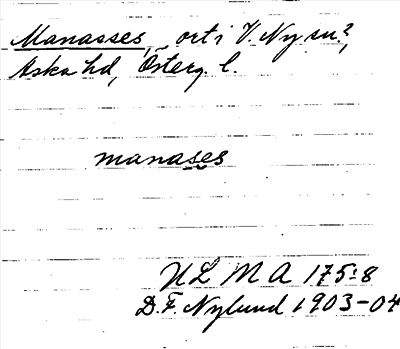 Manasses, ort i V. Ny sn?,
Aska hd, Österg. l.
manases
ULMA 175:8
D.F. Nylund 1903-04